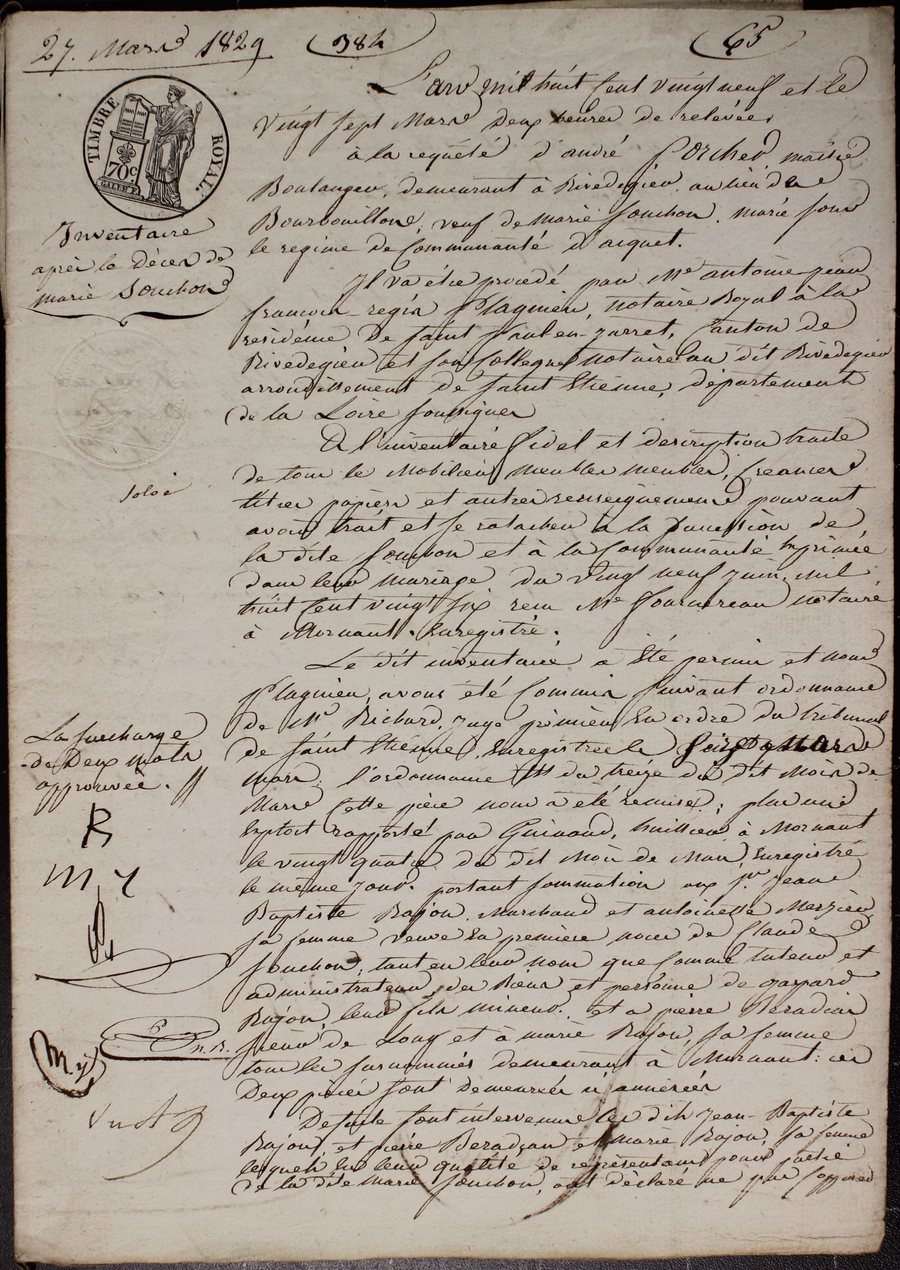 27. Mars 1829
384
65
TIMBRE ROYAL.
70c.
Inventaire
après le Décès de
Marie Souchon
L'an mil huit Cent vingt neuf et le
vingt sept Mars Deux heures de relevée,
à la requête d'andré Corcher maître
Boulanger, demeurant à Rivedegier au lieu de la
Bourbouillon, veuf de Marie Souchon. marié sous
le regime de Communauté d'acquet.
Il va être procédé par Me antoine Jean
francois-regis Plagnieu, notaire Royal à la
residence de Saint Paul en-Jarret, Canton de
Rivedegier et son Collegue notaire au dit Rivedegier
arrondissement de Saint Etienne, département
de la Loire Soussignés
A l'inventaire fidel et description traite
de tous le Mobilier meubles meublés, Creances
titres papiers et autres renseignements pouvant
avoir trait et se ratacher à la Succession de
la dite Souchon et à la Communauté Exprimée
dans leur mariage du vingt neuf Juin mil
huit Cent vingt six reçu Me fournereau notaire
à Mornant. Enregistré.
Le dit inventaire a été permis et nous
Plagnieu, avons été Commis Suivant ordonnance
de Mr Richard, Juge premier en ordre du tribunal
de Saint Etienne, Enregistrée le
mars, l'ordonnance du treize du dit Mois de
Mars Cette pièce nous à été remise; plus une
Exploit rapporté par Guinand, huissier à Mornant
le vingt quatre du dit Mois de Mars, Enregistré
le même Jour. portant sommation aux Srs Jean
Baptiste Rajon, Marchand et antoinette Merzieu
sa femme veuve En première noces de Claude
Souchon, tant en leur nom que Comme tuteur et
administrateur des Biens et personne de gaspard
Rajon leur fils mineur. et a pierre Beradian
tieur de Long et à marie Rajon, sa femme
tous les surnommés demeurant à Mornant: ces
Deux pièces sont demeurées ci annexées
De suite sont intervenue les dits Jean-Baptiste
Rajon, et pierre Beradian et Marie Rajon, sa femme
lesquels En leur qualité de représentant pour partie
de la dite Marie Souchon, ont déclaré ne pas s'opposer
La surcharge
de Deux mots
approuvée.
R
m y
P
n. R.
m. y